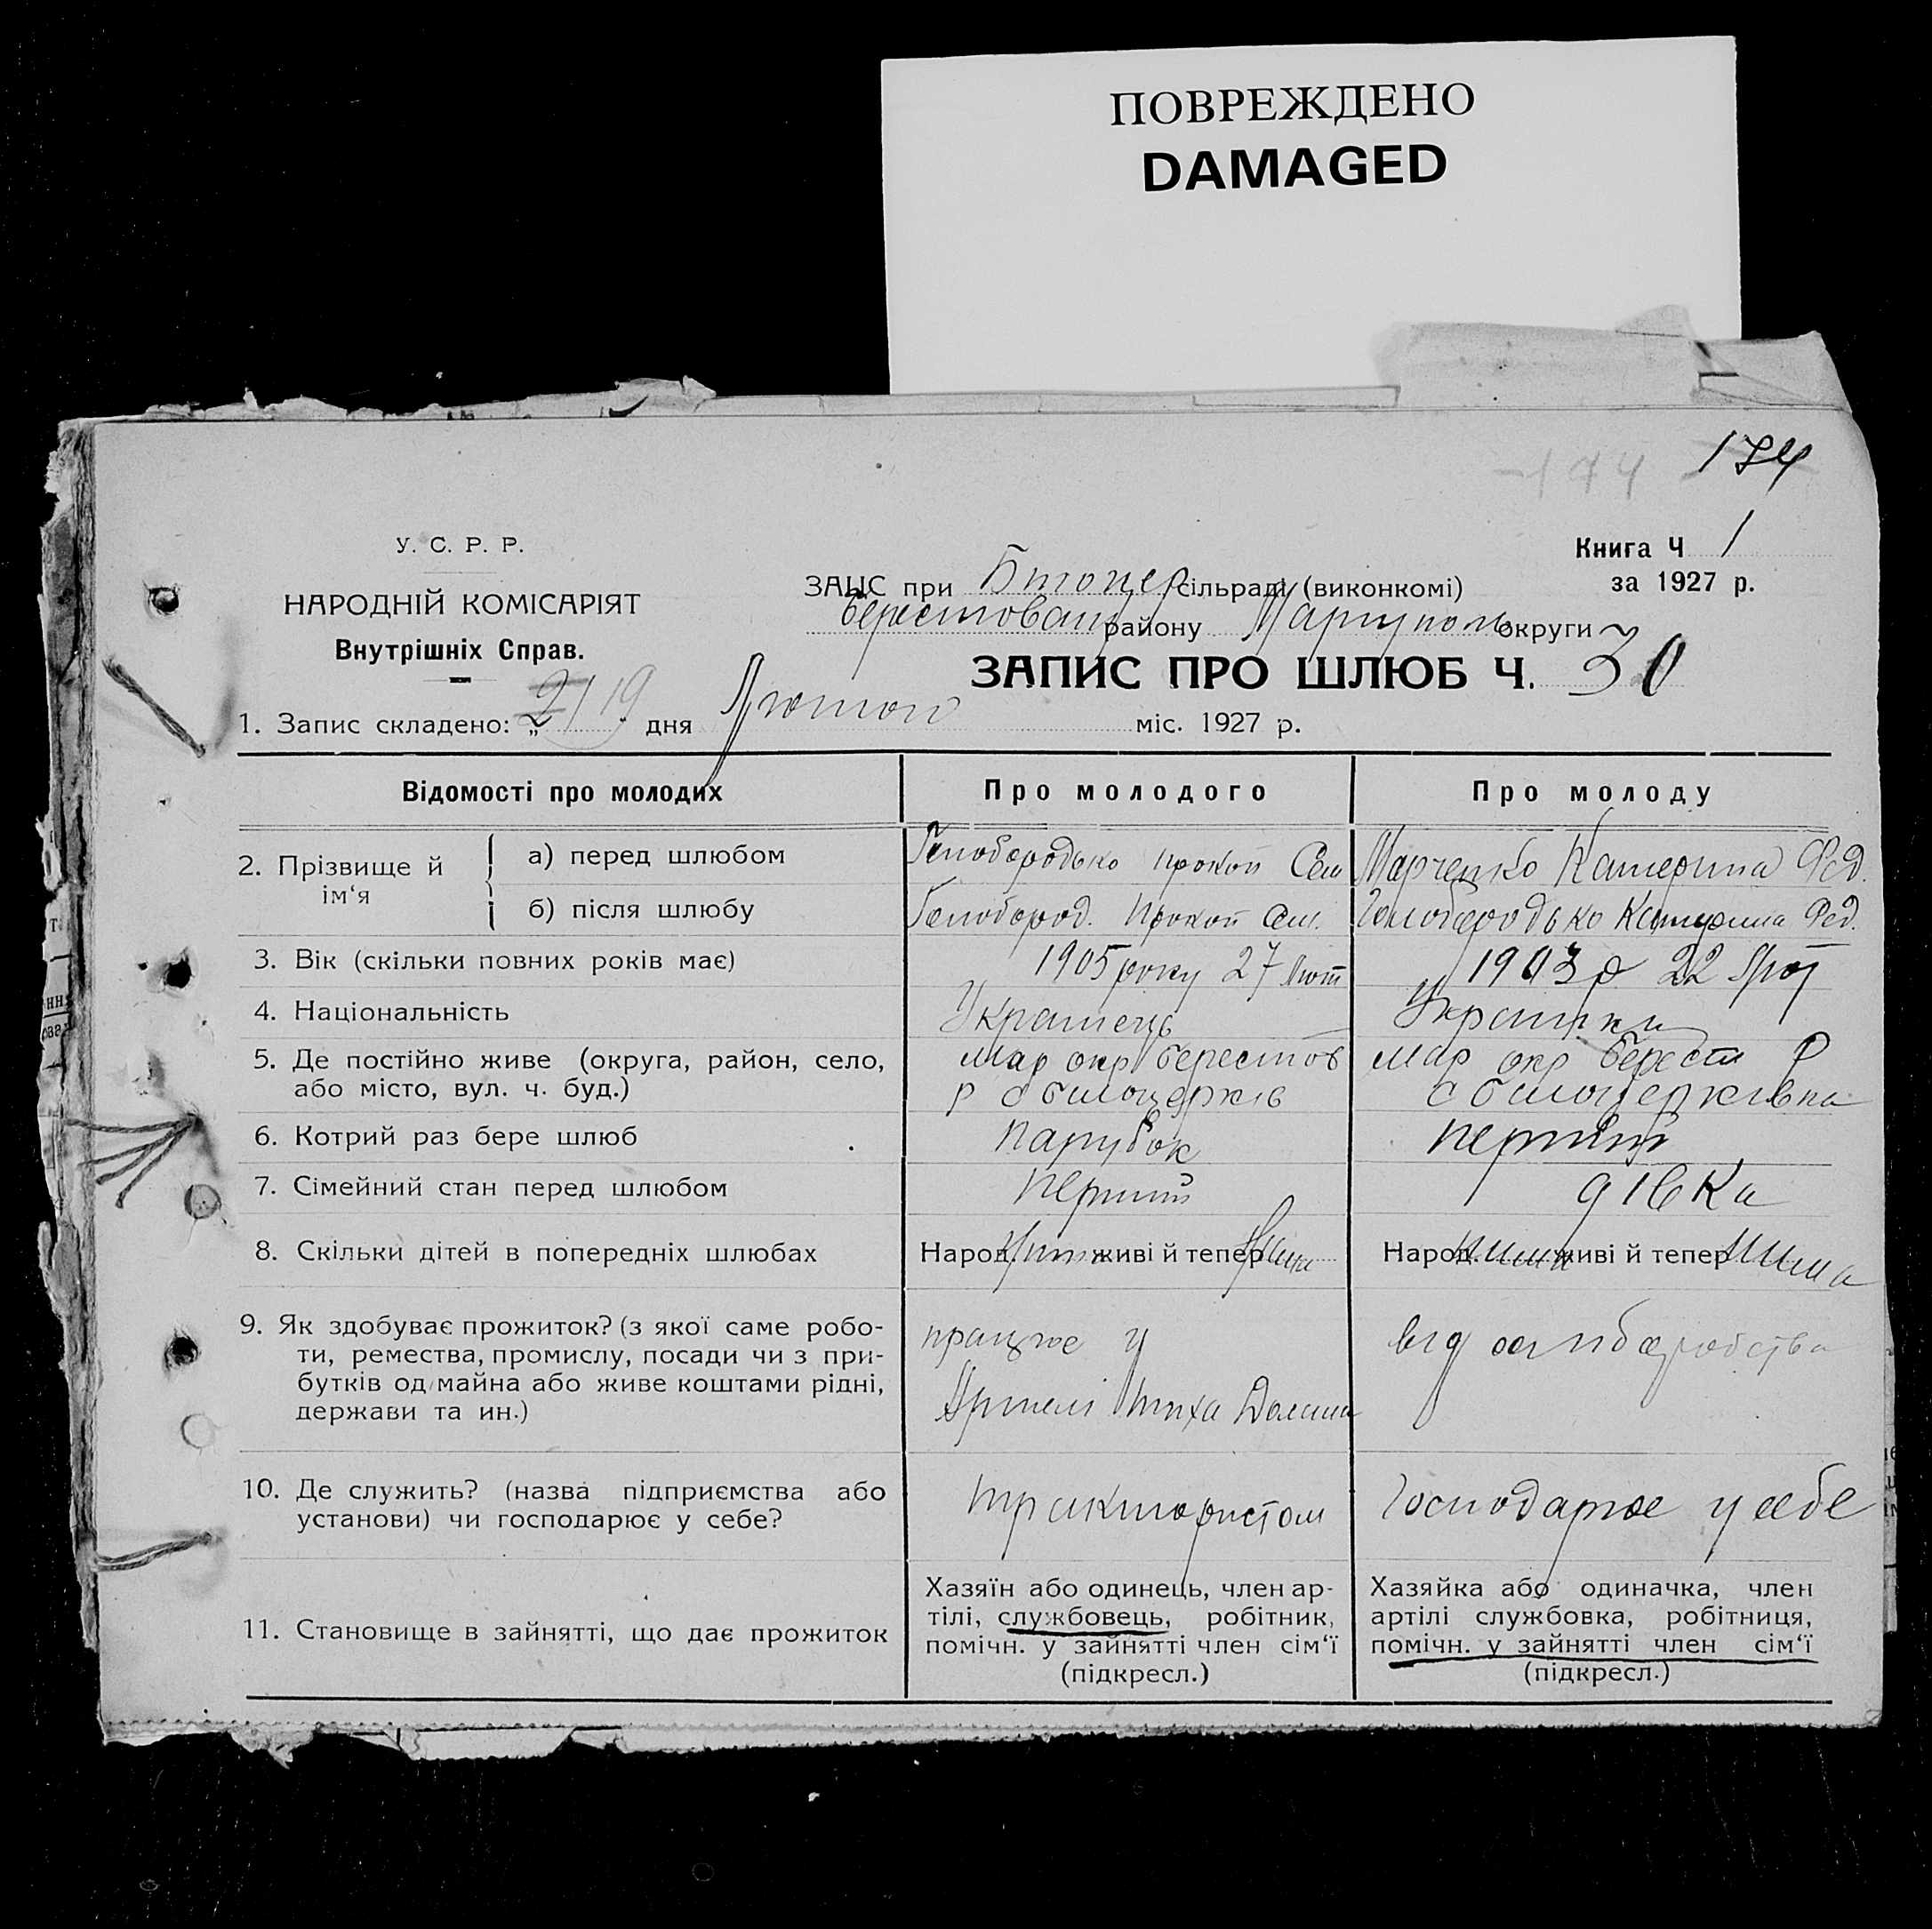 ПОВРЕЖДЕНО
DAMAGED
174
174
У. С. Р. Р.
НАРОДНІЙ КОМІСАРІЯТ
Внутрішніх Справ.
Книга Ч 1
за 1927 р.
ЗАЦС при Білоцер сільраді (виконкомі)
Берестован району Маріуполь округи
ЗАПИС ПРО ШЛЮБ Ч. 30
1. Запис складено: „ 19 дня Лютого міс. 1927 р.
Відомості про молодих
Про молодого
Про молоду
2. Прізвище й ім‘я
а) перед шлюбом
Голобородько Прокоп Сем
Марченко Катерина Фед.
б) після шлюбу
Голобород. Прокоп Сем.
Голобородько Катерина Фед.
3. Вік (скільки повних років має)
1905 року 27 Лют
1903 р 22 Лют
4. Національність
Українець
Українка
5. Де постійно живе (округа, район, село,
або місто, вул. ч. буд.)
Мар окр Берестов
р с Білоцерків
Мар окр Берест р
с Білоцерківка
6. Котрий раз бере шлюб
парубок
перший
7. Сімейний стан перед шлюбом
перший
дівка
8. Скільки дітей в попередніх шлюбах
Народ. нима живі й тепер нима
Народ. нима живі й тепер нима
9. Як здобуває прожиток? (з якої саме робо-
ти, ремества, промислу, посади чи з при-
бутків од майна або живе коштами рідні,
держави та ин.)
працює у
Артелі Тиха Долина
від
10. Де служить? (назва підприємства або
установи) чи господарює у себе?
трактористом
Господарює у себе
11. Становище в зайнятті, що дає прожиток
Хазяїн або одинець, член ар-
тілі, службовець, робітник,
помічн. у зайнятті член сім‘ї
(підкресл.)
Хазяйка або одиначка, член
артілі службовка, робітниця,
помічн. у зайнятті член сім‘ї
(підкресл.)